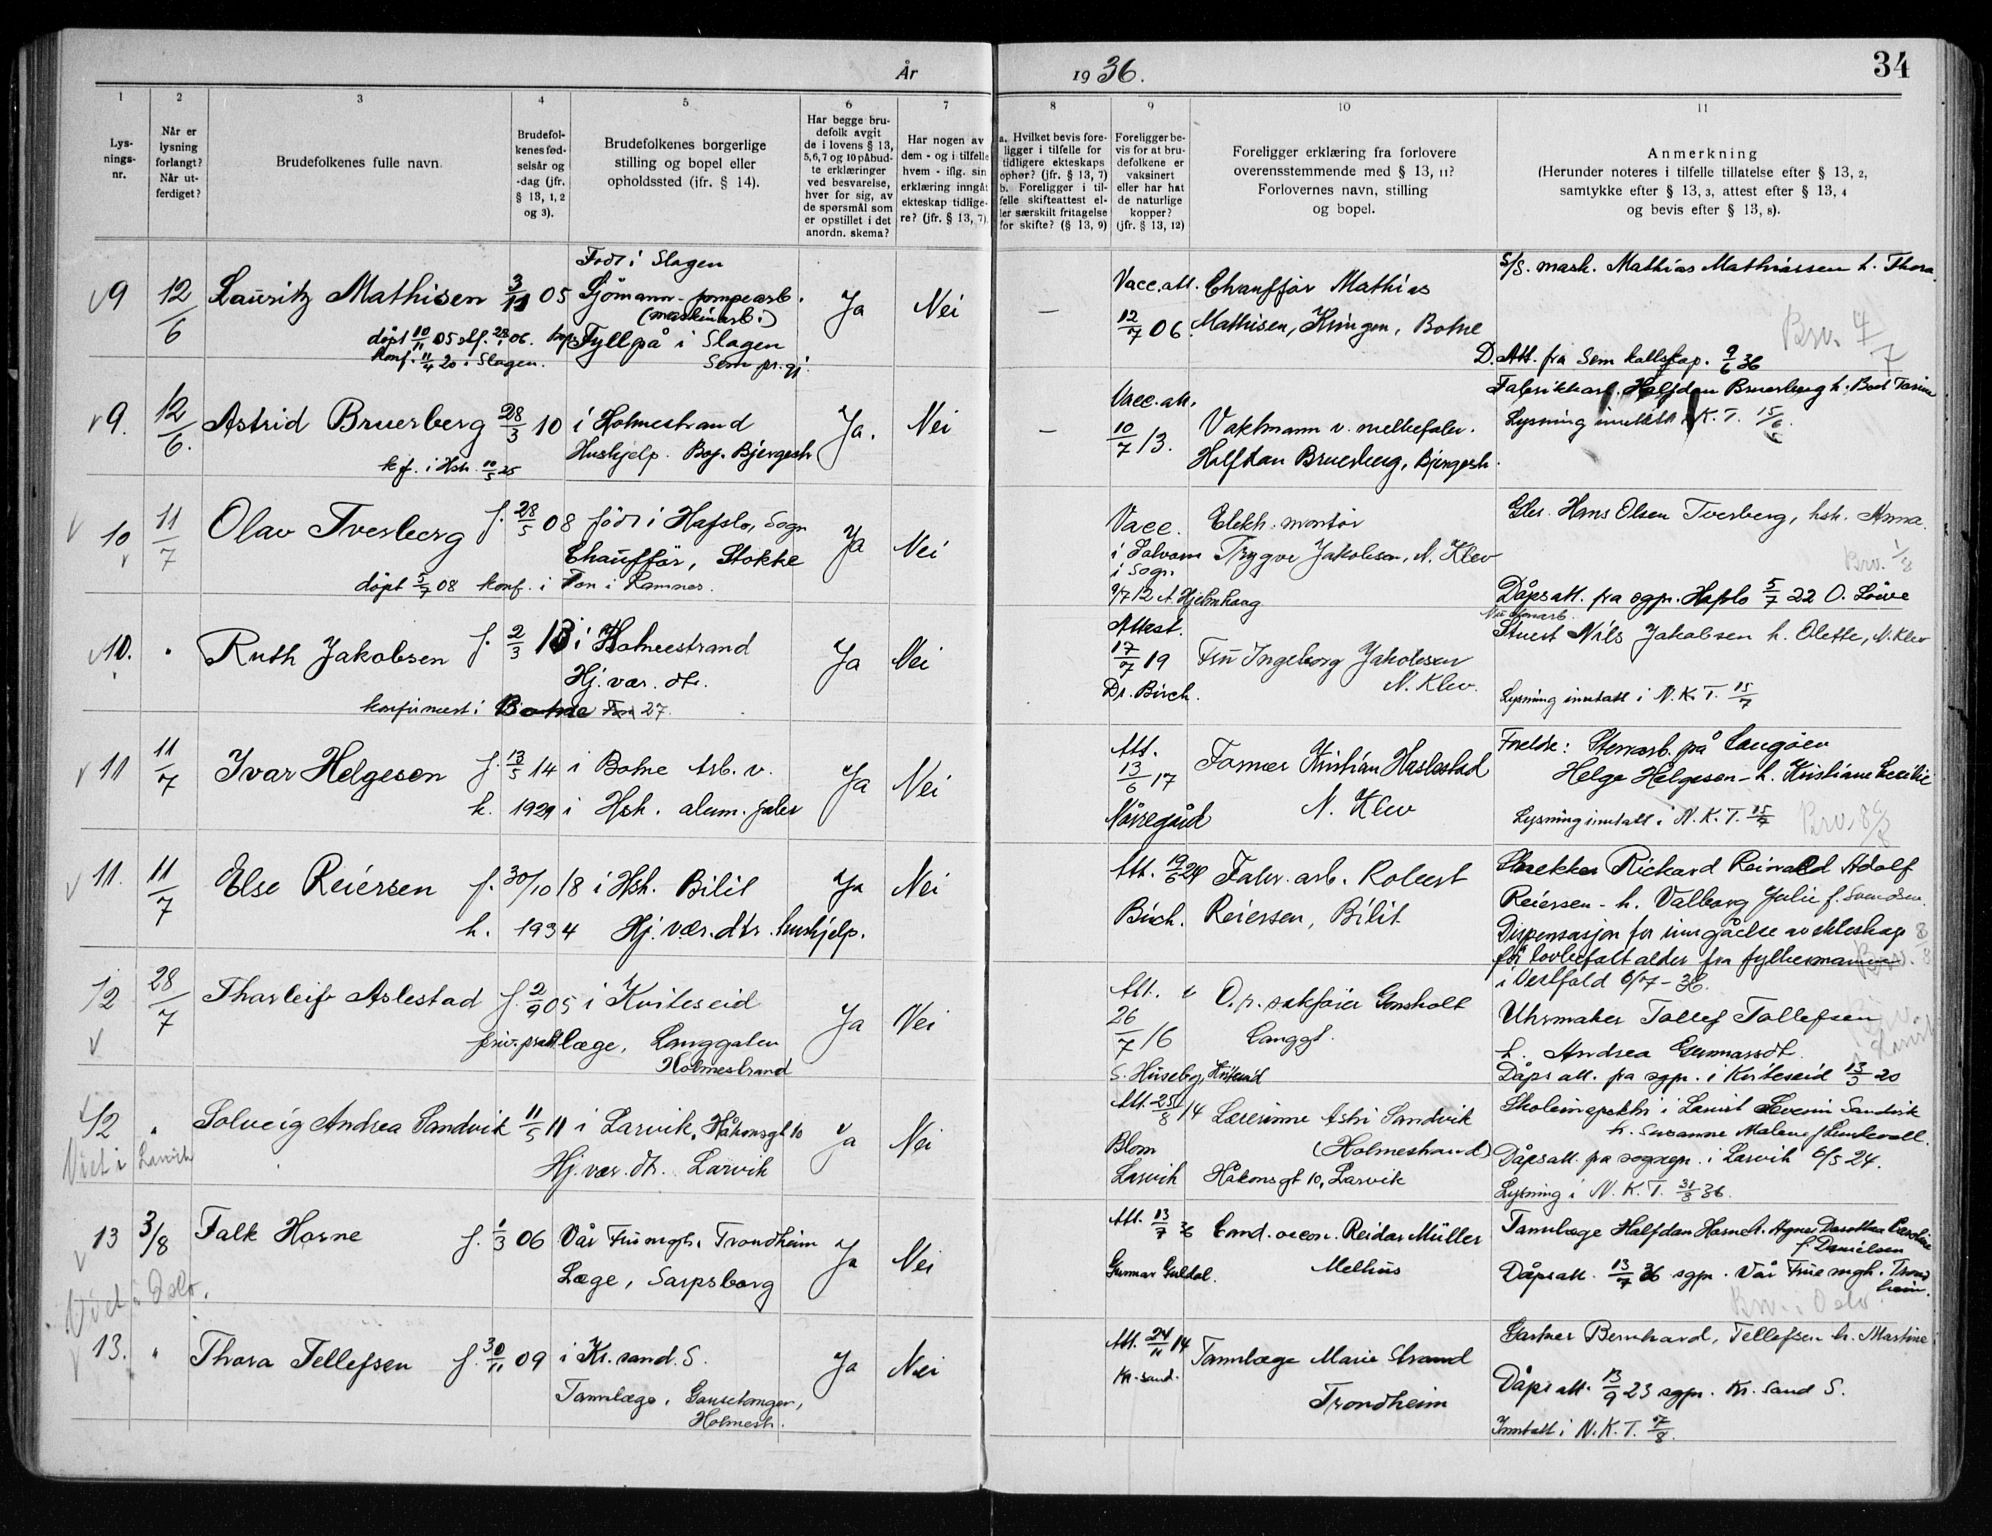 År
1936.
34
1
2
3
4
5
6
7
8
9
10
11
Lys-
nings-
nr.
Når er
lysning
forlangt?
Når ut-
ferdiget?
Brudefolkenes fulle navn.
Brudefol-
kenes fød-
selsår og
-dag (jfr.
§ 13, 1, 2
og 3).
Brudefolkenes borgerlige
stilling og bopel eller
opholdssted (jfr. § 14).
Har begge bru-
defolk avgit
de i lovens § 13,
5,6,7 og 10 påbud-
te erklæringer
ved besvarelse,
hver for sig, av
de spørsmål som
er opstillet i det
anordn. skema?
Har nogen av
dem - og i tilfelle
hvem - iflg. sin
erklæring inngåt
ekteskap tidlige-
re? (jfr. § 13, 7)
a. Hvilket bevis fore-
ligger i tilfelle for
tidligere ekteskaps
ophør? (jfr. § 13, 7)
b. Foreligger i til-
felle skifteattest el-
ler særskilt fritagelse
for skifte? (§ 13, 9)
Foreligger be-
vis for at bru-
defolkene er
vaksinert
eller har hat
de naturlige
kopper?
(jfr. § 13, 12)
Foreligger erklæring fra forlovere
overensstemmende med § 13, 11?
Forlovernes navn, stilling
og bopel.
Anmerkning
(Herunder noteres i tilfelle tillatelse efter § 13, 2,
samtykke efter § 13, 3, attest efter § 13, 4
og bevis efter § 13, 8).
9 12/6 Lauritz Mathisen 3/11 05
Født i Slagen
Sjømann - pumpearb.
(maskinarb.)
døpt 10/11 05
konf. 11/4 20 i Slagen.
i Slagen
Sem pr.gj.
Ja Nei —
Vacc. att.
12/7 06.
Chauffør Mathias
Mathisen, Kringen, Botne
S/S. mask. Mathias Mathiassen h. Thora
Brv. 4/7
D. Att. fra Sem 9/6 36
9. 12/6. Astrid Bruerberg 28/3 10 i Holmestrand
Hushjelp. Bop. Bjergest.
kf. i Hsh. 10/5 25
Ja. Nei —
Vacc. att.
10/7 13.
Vaktmann v. melkefabr.
Halfdan Bruerberg, Bjergest.
Fabrikkarb. Halfdan Bruerberg h.
Lysning inntatt i N.K.T. 15/6
10 11/7 Olav Tverberg f. 28/5 08 født i Hafslo, Sogn
Chauffør, Stokke
døpt 5/7 08 konf. i Fon i Ramnes.
Ja Nei
Vacc.
i Solvorn
i Sogn
9/7 12 A. Hjelmhaug
Elektr. montør
Trygve Jakobsen, N. Klev
Hans Olsen Tverberg, hst. Anna.
Brv. 1/8
Dåpsatt. fra sgpr. Hafslo 5/7 22 O. Löwe
10. " Ruth Jakobsen f. 2/3 13 i Holmestrand
Hj. vær. dtr.
konfirmert i Botne 27.
Ja Nei
Attest.
17/7 19
Dr. Birch.
Fru Ingeborg Jakobsen
N. Klev.
Nils Jakobsen h. Olette, N. Klev
Lysning inntatt i N.K.T. 15/7
11 11/7 Ivar Helgesen f. 13/5 14 i Botne Arb. v.
k. 1929 i Hsh. alum. fabr
Ja Nei
Att.
13/6 17
Nårregård
Former Kristian Haslestad
N. Klev
Foreldre: Stenarb. på Langøen
Helge Helgesen - h. Kristiane Cecilie
Lysning inntatt i N.K.T. 15/7
Brv. 8/8
11. 11/7 Else Reiersen f. 30/10 18 i Hsh. Bilit
k. 1934 Hj. vær. dtr. hushjelp.
Ja Nei
Att. 19/6 24
Birch.
Fabr. arb. Robert
Reiersen, Bilit
Rickard Reinvald Adolf
Reiersen - h. Valborg Julie f. Svendsen.
Dispensasjon for inngåelse av ekteskap
før lovbefalt alder fra fylkesmannen
i Vestfold 6/7 - 36.
Brv. 8/8
12 28/7 Tharleif Aslestad f. 2/9 05 i Kviteseid
priv. prakt. læge, Langgaten
Holmestrand
Ja Nei
Att.
26/7 16
S. Huseby, Kviteseid
O.r. sakfører Gunsholt
Langgt.
Uhrmaker Tollef Tollefsen
h. Andrea Gunnarsdt.
Dåpsatt. fra sgpr. i Kviteseid 13/3 20
12 " Solveig Andrea Sandvik 11/5 11 i Larvik, Håkonsgt 10
Hj. vær. dtr. Larvik
Viet i Larvik
Ja Nei
Att. 25/8 14
Blom
Larvik
Lærerinne Astri Sandvik
(Holmestrand)
Håkonsgt 10, Larvik
Skoleinspektør i Larvik Severin Sandvik
h. Susanne Malene f.
Dåpsatt. fra sogpr. i Larvik 6/5 24.
Lysning i N.K.T. 36.
13 3/8 Falk Horne f. 1/3 06 Vår Frue mgh. Trondheim
Læge, Sarpsborg
Viet i Oslo.
Ja Nei
Att. 13/7 36
Gunnar Guldal.
Cand. oecon. Reidar Müller
Melhus
Tannlæge Halfdan Horne h. Agnes Dorothea Caroline
f. Danielsen
Dåpsatt. 13/7 36 sgpr. Vår Frue mgh. Trond
heim.
Brv. i Oslo.
13. " Thora Tellefsen f. 30/11 09 i Kr. sand. S.
Tannlæge, Gausetangen,
Holmestr.
Ja Nei
Att. 24/11 14
Kr. sand.
Tannlæge Marie Strand
Trondheim
Gartner Bernhard Tellefsen h. Martine
Dåpsatt. 13/9 23 sgpr. Kr. Sand S.
Inntatt i N.K.T. 7/8.